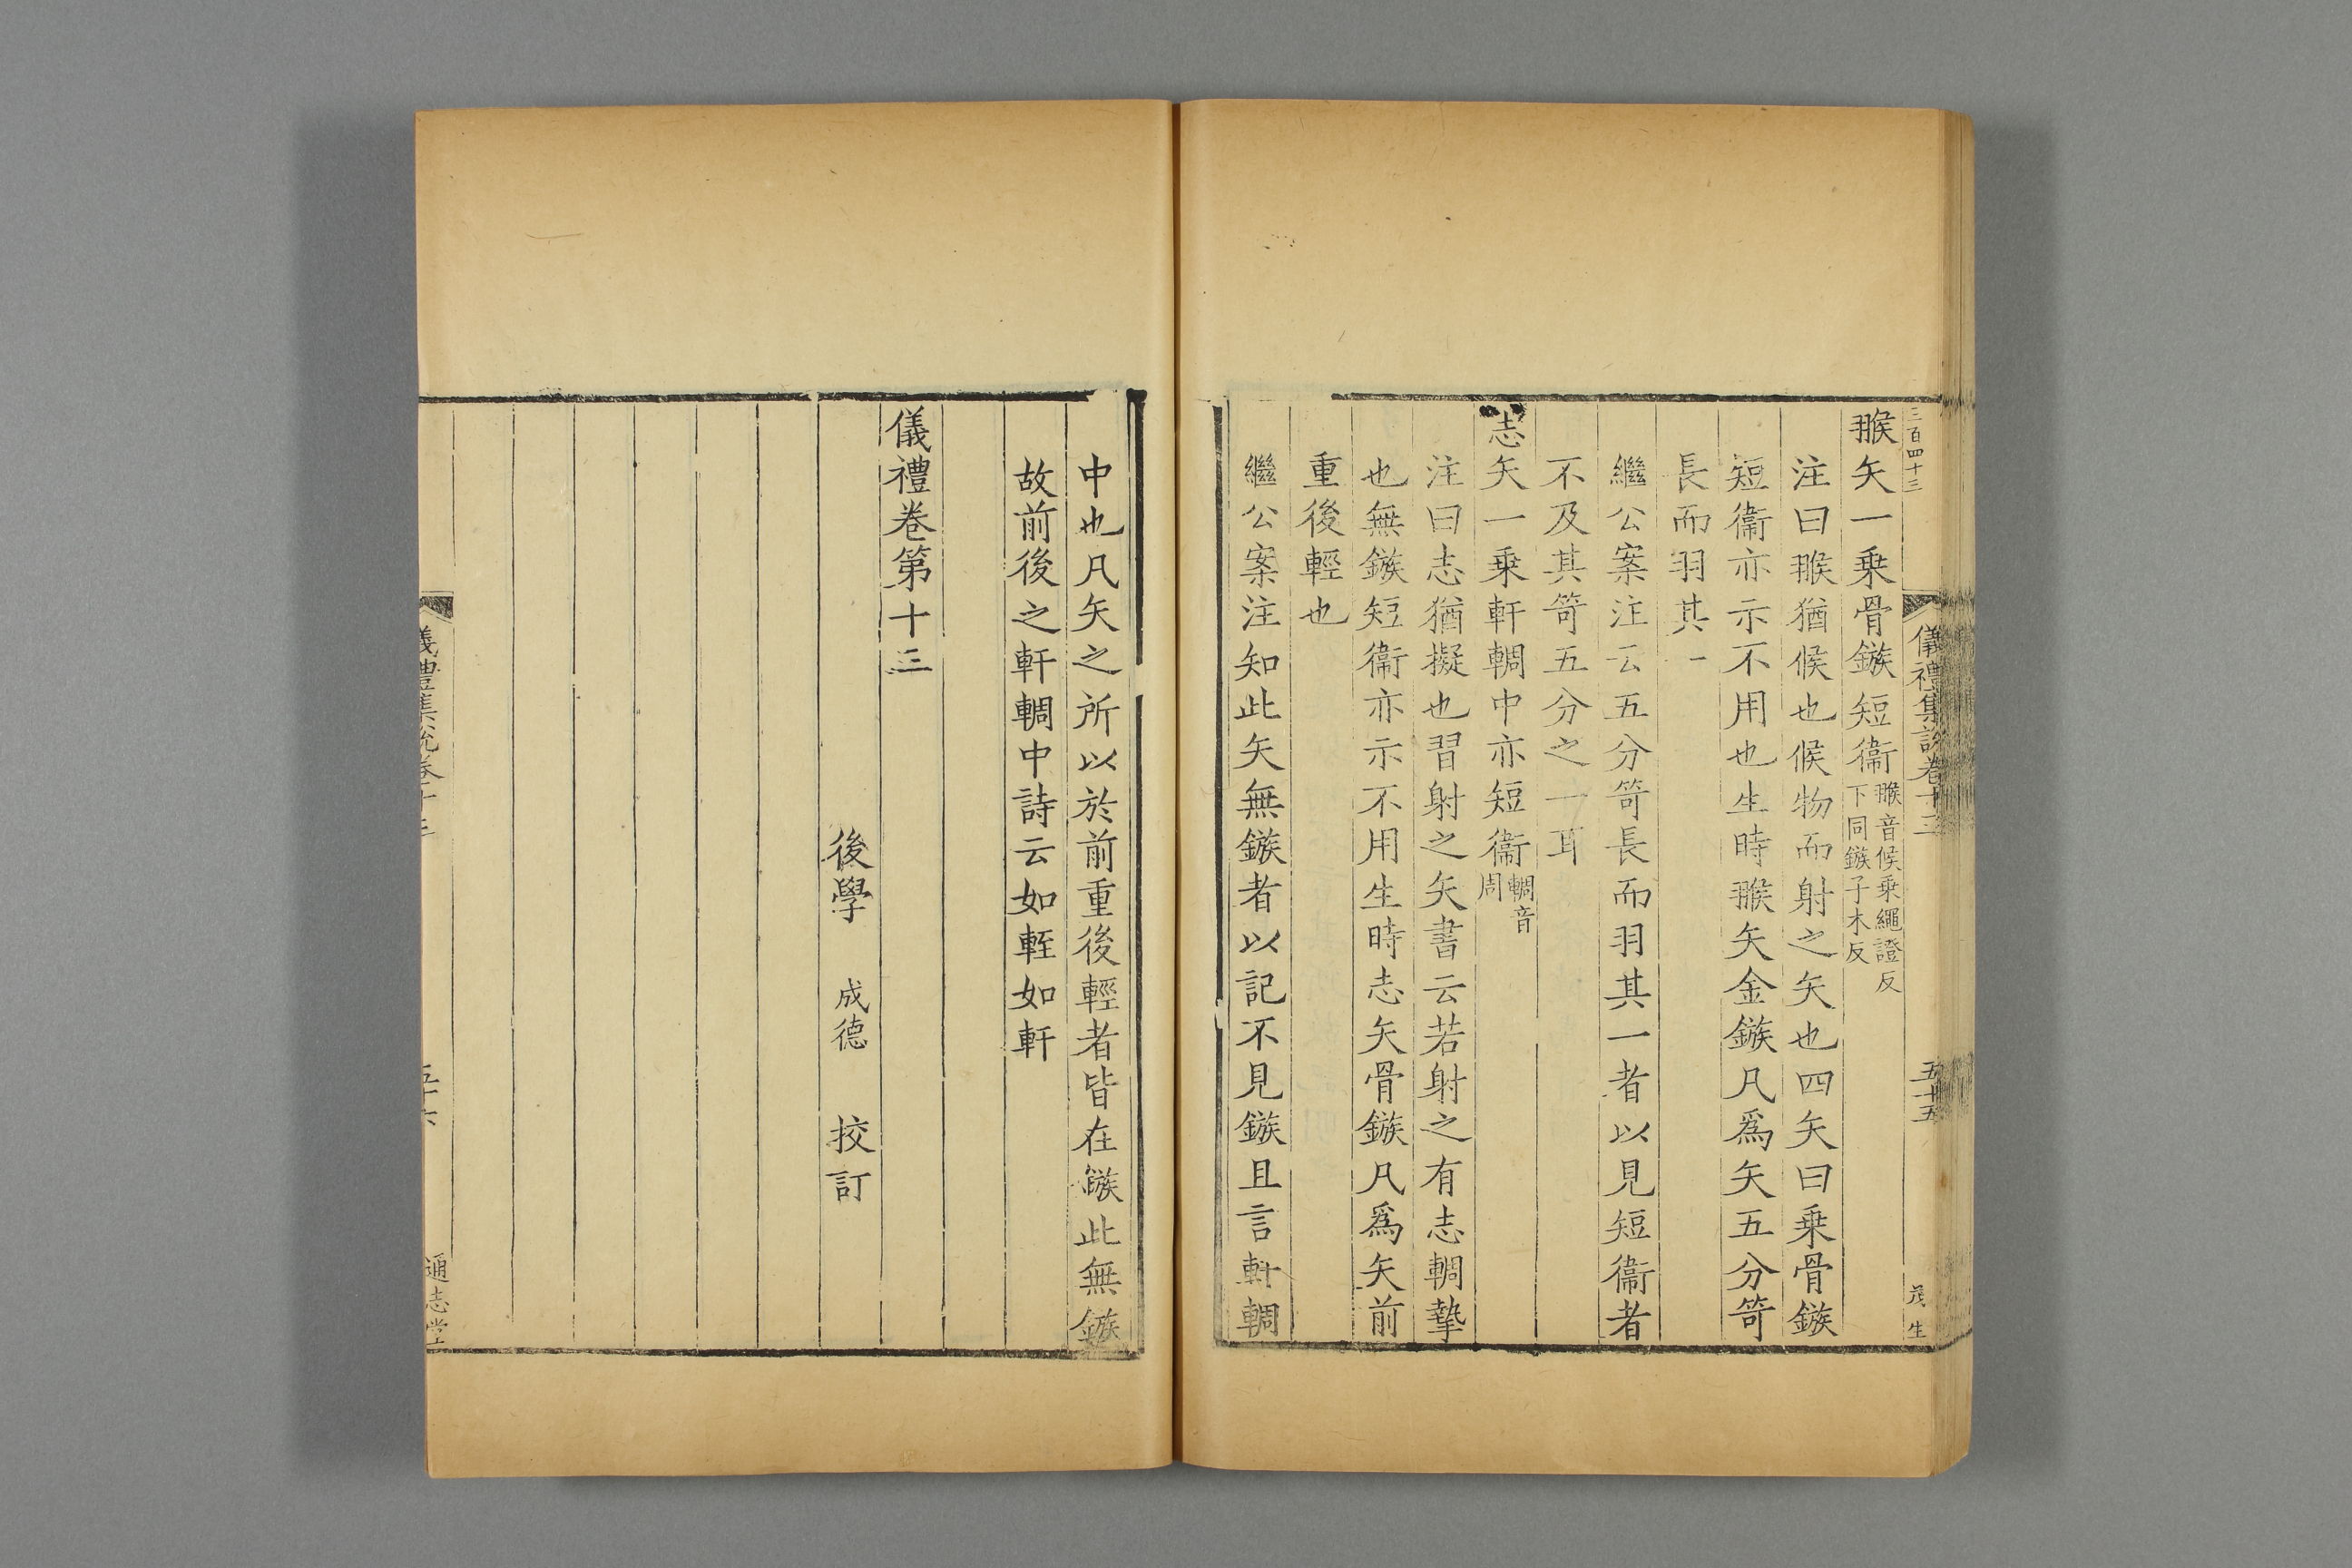 三百四十三
儀禮集說卷十三
五十五
茂生
翭矢一乗骨鏃短衞翭音候乗繩證反下同鏃子木反
注曰翭猶候也候物而射之矢也四矢曰乗骨鏃
短衞亦示不用也生時翭矢金鏃凡爲矢五分笴
長而羽其一
繼公案注云五分笴長而羽其一者以見短衞者
不及其笴五分之一耳
志矢一乗軒輖中亦短衞輖音周
注曰志猶擬也習射之矢書云若射之有志輖摯
也無鏃短衞亦示不用生時志矢骨鏃凡爲矢前
重後輕也
繼公案注知此矢無鏃者以記不見鏃且言軒輖
中也凡矢之所以於前重後輕者皆在鏃此無鏃
故前後之軒輖中詩云如輊如軒
儀禮卷第十三
後學 成德 挍訂
儀禮集說卷十三
五十六
通志堂